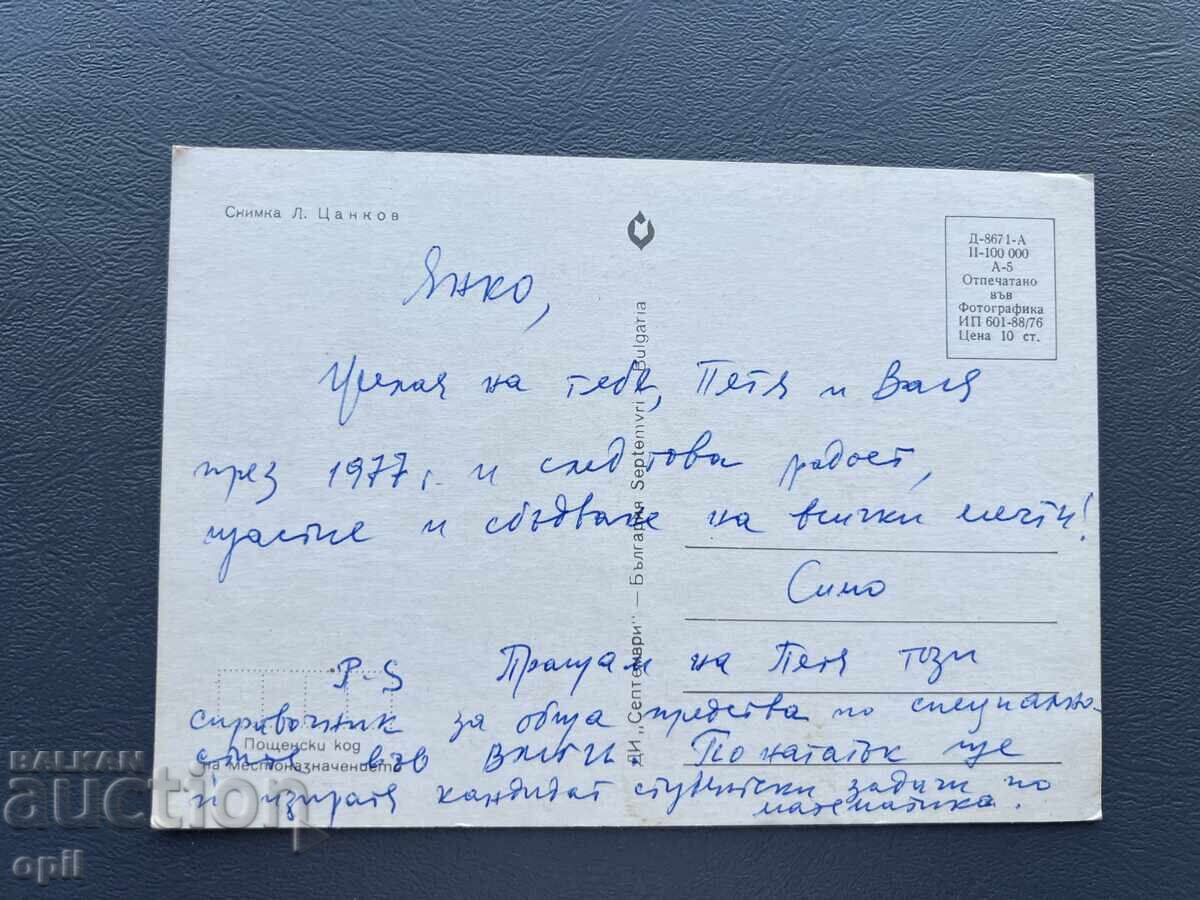 Снимка Л. Цанков
Д-8671-А
II-100 000
А-5
Отпечатано
във
Фотографика
ИП 601-88/76
Цена 10 ст.
Янко,
на тебе, Петя и Вася
през 1977 г. и след това радост,
щастие и сбъдване на всички мечти!
Симо
P-S Пращам на Петя този
справочник за обща представа по специално-
стите във ВМЕИ. По нататък ще
й изпратя кандидат студентски задачи по
математика.
ДИ „Септември" — България Septemvri Bulgaria
Пощенски код
на местоназначението
BALKAN
auction
opil